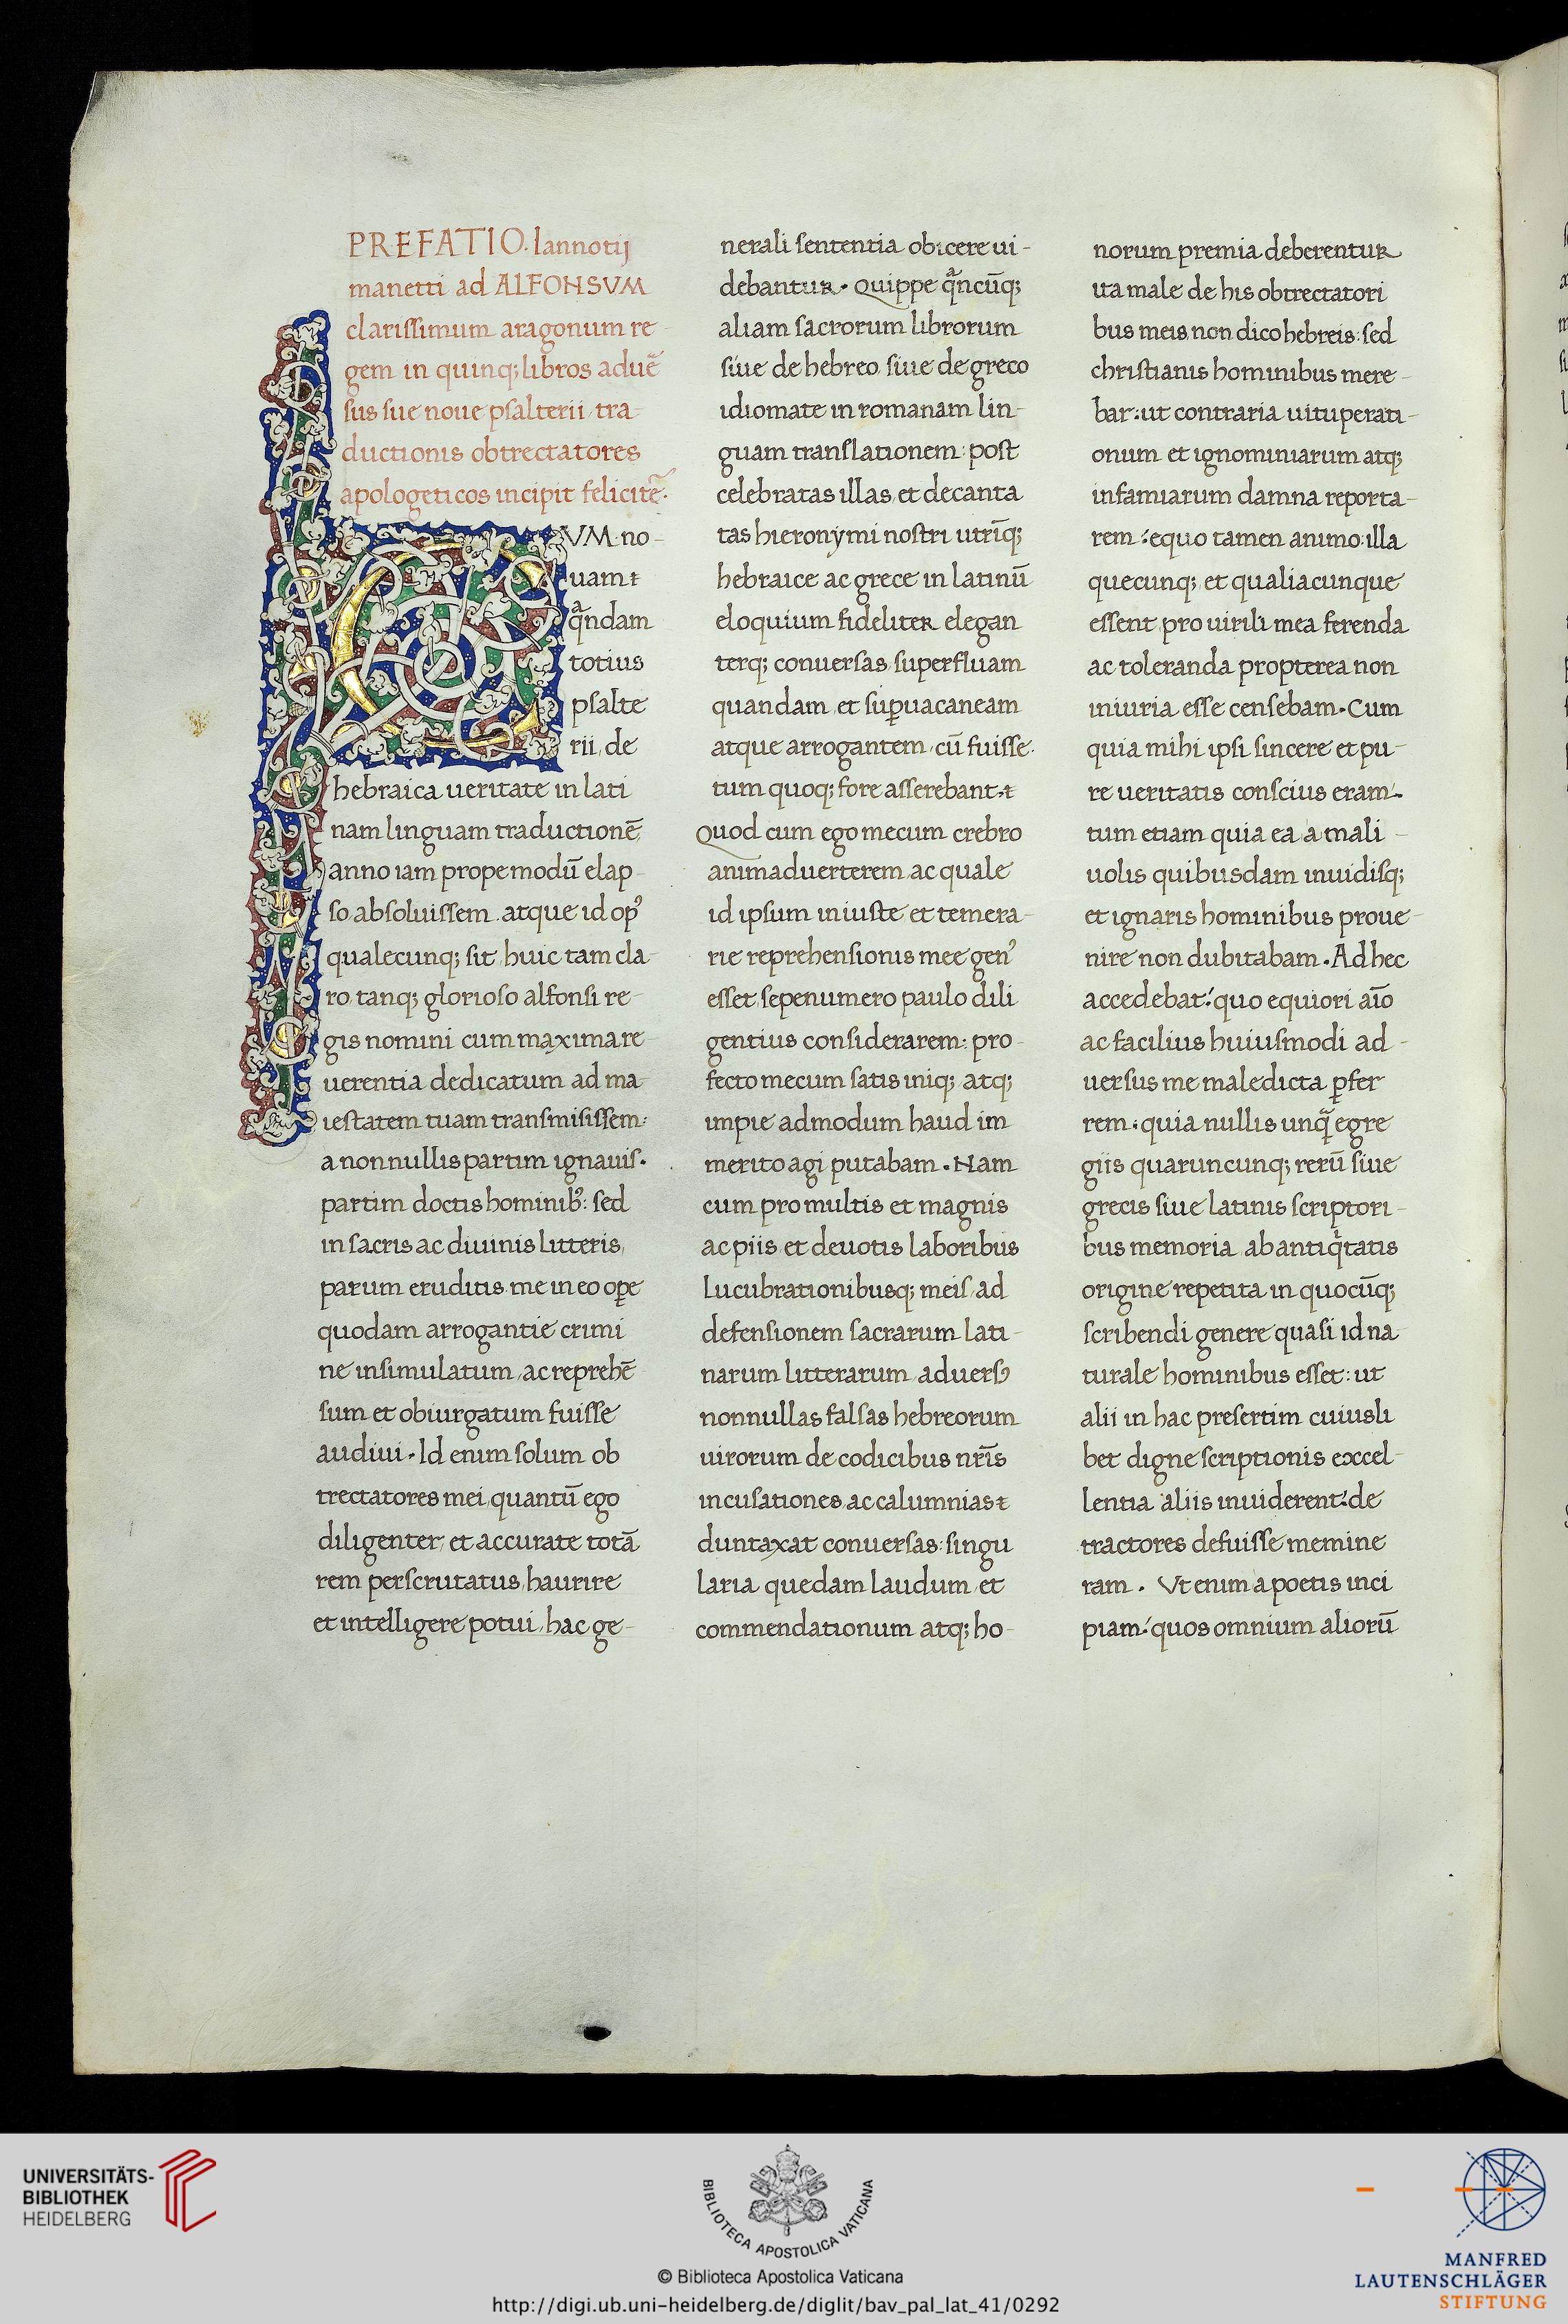 PREFATIO. Iannotij
manetti ad ALFONSVM
clarissimum aragonum re-
gem in quinq; libros adue᷑
sus sue noue psalterii tra-
ductionis obtrectatores
apologeticos incipit felicite᷑.
CVM no-
uam &
q̄ndam
totius
psalte
rii, de
hebraica ueritate in lati
nam linguam traductionē,
anno iam propemodū elap-
so absoluissem. atque id opꝰ
qualecunq; sit, huic tam cla-
ro, tanq; glorioso alfonsi re-
gis nomini cum maxima re-
uerentia dedicatum ad ma-
iestatem tuam transmisissem:
a nonnullis partim ignauis.
partim doctis hominibꝰ: sed
in sacris ac diuinis litteris,
parum eruditis me in eo oꝑe
quodam arrogantie crimi
ne insimulatum, ac reprehē-
sum et obiurgatum fuisse
audiui. Id enim solum ob
trectatores mei, quantū ego
diligenter, et accurate totā
rem perscrutatus, haurire
et intelligere potui, hac ge-
nerali sententia obicere ui-
debantur. Quippe q̄ncūq;
aliam sacrorum librorum
siue de hebreo, siue de greco
idiomate in romanam lin-
guam translationem: post
celebratas illas, et decanta
tas hieronymi nostri utrīq;
hebraice ac grece in latinū
eloquium fideliter elegan
terq; conuersas, superfluam
quandam, et suꝑuacaneam
atque arrogantem, cū fuisse.
tum quoq; fore asserebant. &
Quod cum ego mecum crebro
animaduerterem, ac quale
id ipsum iniuste et temera-
rie reprehensionis mee genꝰ
esset, sepenumero paulo dili
gentius considerarem: pro-
fecto mecum satis iniq; atq;
impie admodum haud im
merito agi putabam. Nam
cum pro multis et magnis
ac piis, et deuotis laboribus
Lucubrationibusq; meis, ad
defensionem sacrarum lati-
narum litterarum, aduersꝰ
nonnullas falsas hebreorum
uirorum de codicibus nr̄is
incusationes ac calumnias &
duntaxat conuersas: singu
laria quedam laudum, et
commendationum atq; ho-
norum premia deberentur
ita male de his obtrectatori
bus meis, non dico hebreis: sed
christianis hominibus mere-
bar. ut contraria uituperati-
onum et ignominiarum atq;
infamiarum damna reporta-
rem: equo tamen animo illa
quecunq; et qualiacunque
essent, pro uirili mea ferenda
ac toleranda propterea non
iniuria esse censebam. Cum
quia mihi ipsi sincere et pu-
re ueritatis conscius eram.
tum etiam quia ea a mali-
uolis quibusdam inuidisq;
et ignaris hominibus proue-
nire non dubitabam. Ad hec
accedebat: quo equiori aīo
ac facilius huiusmodi ad-
uersus me maledicta ꝑfer
rem: quia nullis unq̄ egre
giis quaruncunq; rerū siue
grecis siue latinis scriptori-
bus memoria ab antiq̇tatis
origine repetita in quocūq;
scribendi genere quasi id na
turale hominibus esset: ut
alii in hac presertim cuiusli
bet digne scriptionis excel-
lentia aliis inuiderent: de
tractores defuisse memine
ram. Vt enim a poetis inci
piam: quos omnium aliorū
UNIVERSITÄTS-
BIBLIOTHEK
HEIDELBERG
BIBLIOTECA APOSTOLICA VATICANA
© Biblioteca Apostolica Vaticana
http://digi.ub.uni-heidelberg.de/diglit/bav_pal_lat_41/0292
MANFRED
LAUTENSCHLÄGER
STIFTUNG